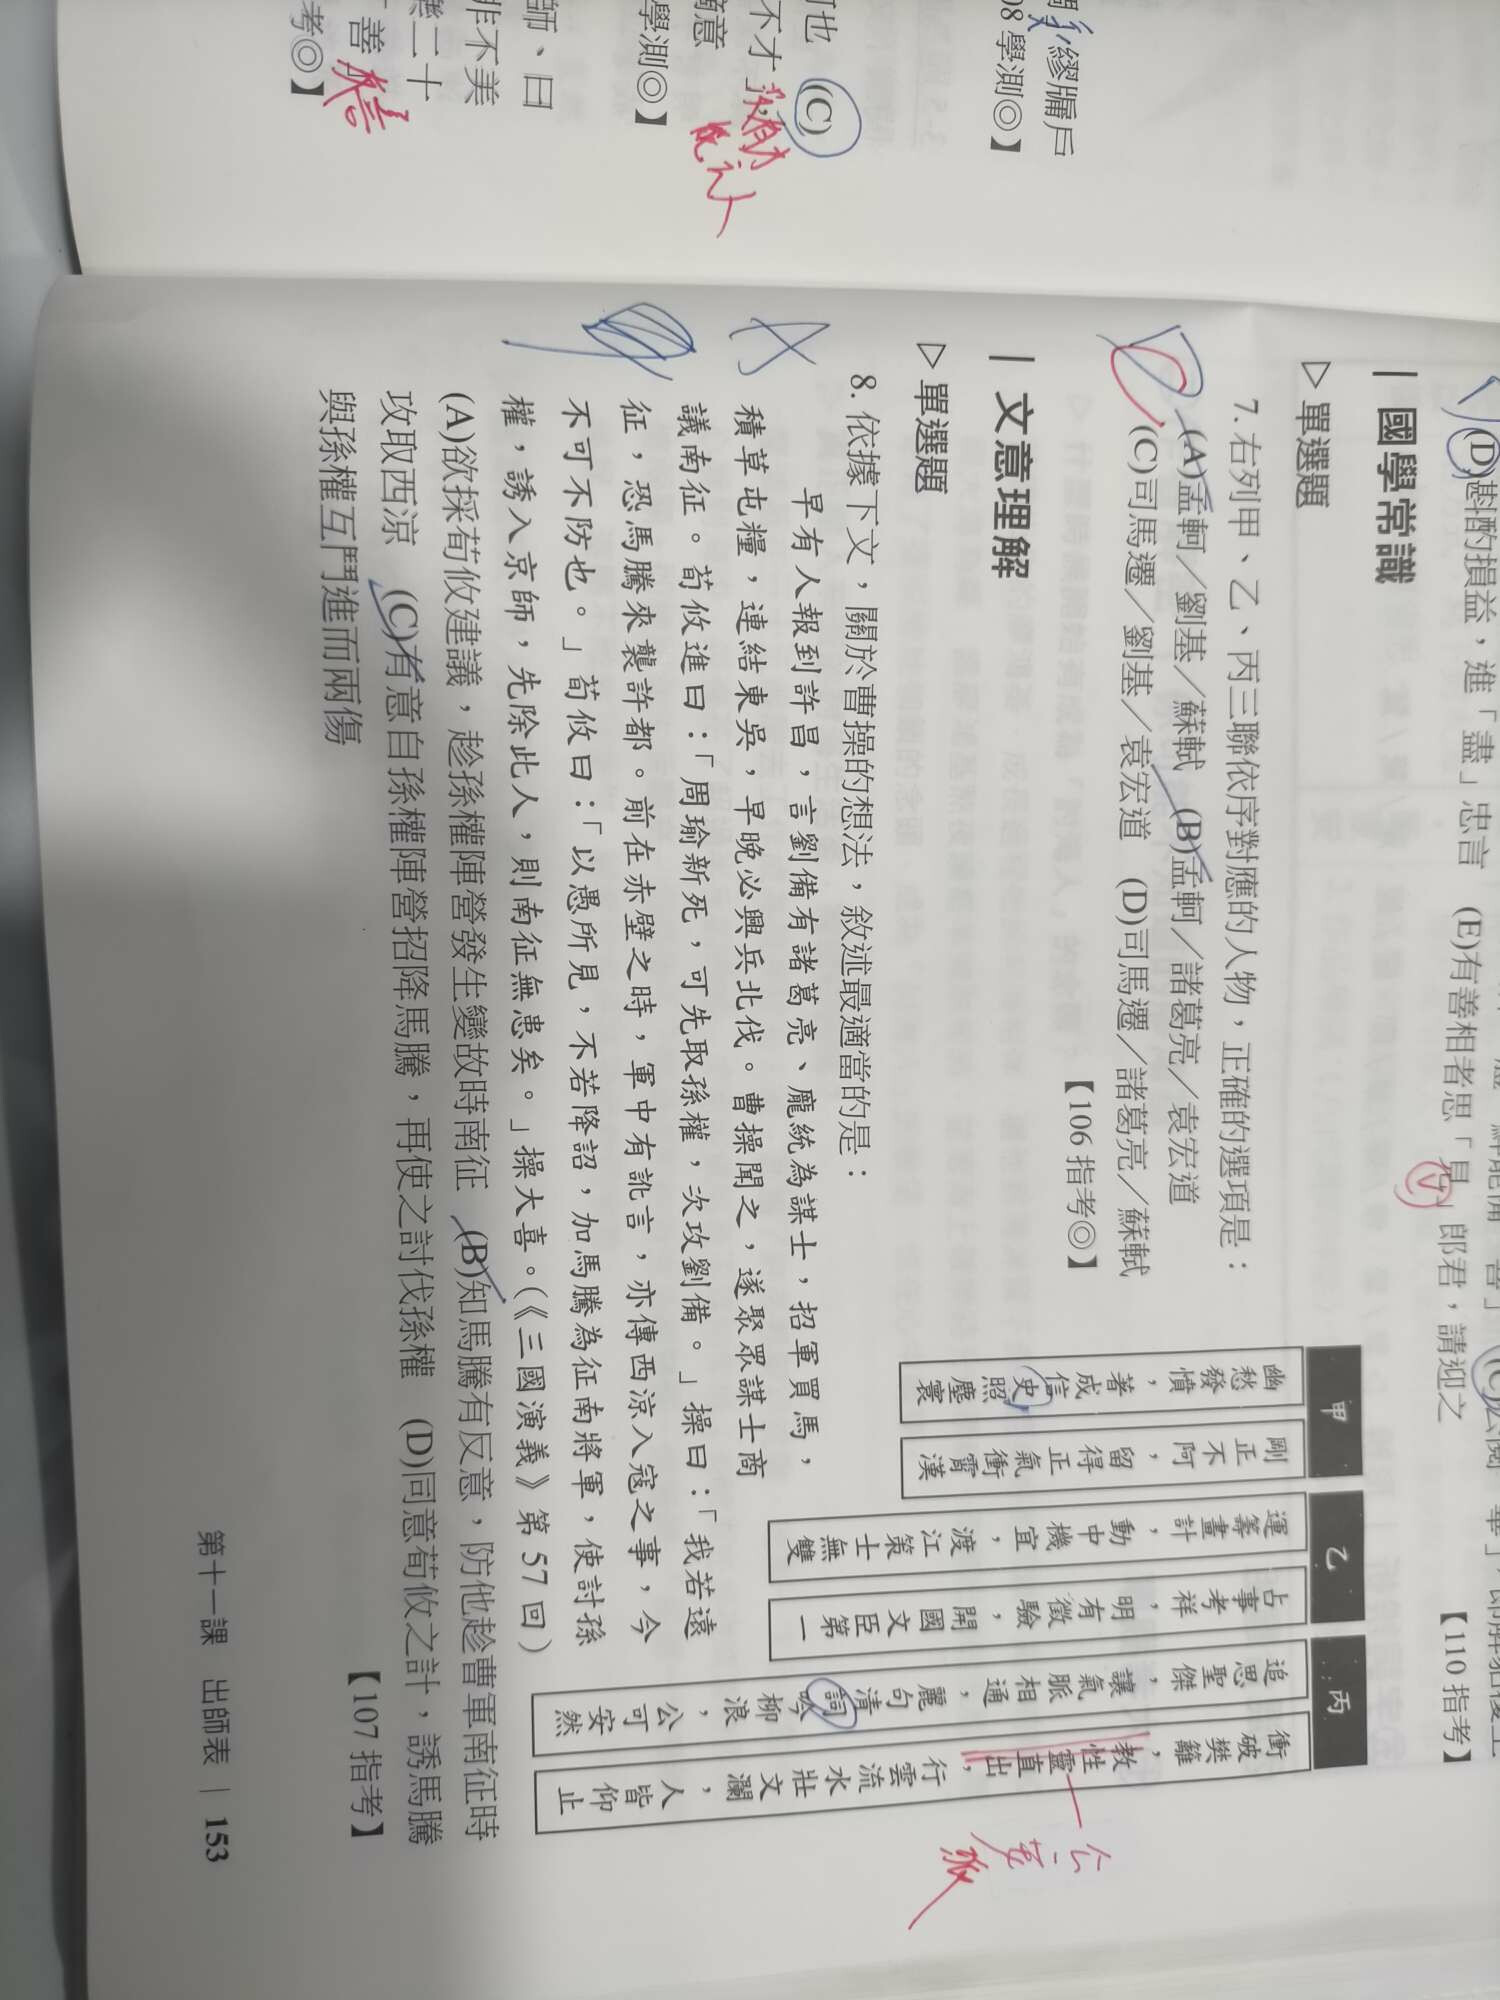 繆牖戶
08學測◎】
何也 (C)
不才
學測◎】
師、曰
非不美
二十
善
考◎】
(D)斟酌損益，進「盡」忠言 (E)有善相者思「見」郎君，請迎之
【110指考】
國學常識
▷單選題
7. 右列甲、乙、丙三聯依序對應的人物，正確的選項是：
(A)孟軻／劉基／蘇軾 (B)孟軻／諸葛亮／袁宏道
(C)司馬遷／劉基／袁宏道 (D)司馬遷／諸葛亮／蘇軾
【106指考◎】
甲
幽愁發憤，著成信史照塵寰
剛正不阿，留得正氣衝霄漢
乙
運籌畫計，動中機宜，渡江策士無雙
占事考祥，明有徵驗，開國文臣第一
丙
追思聖傑，讓氣脈相通，麗句清詞吟柳浪，公可安然
衝破樊籬，教性靈直出，行雲流水壯文瀾，人皆仰止
公安派
文意理解
▷單選題
8. 依據下文，關於曹操的想法，敘述最適當的是：
早有人報到許昌，言劉備有諸葛亮、龐統為謀士，招軍買馬，
積草屯糧，連結東吳，早晚必興兵北伐。曹操聞之，遂聚眾謀士商
議南征。荀攸進曰：「周瑜新死，可先取孫權，次攻劉備。」操曰：「我若遠
征，恐馬騰來襲許都。前在赤壁之時，軍中有訛言，亦傳西涼入寇之事，今
不可不防也。」荀攸曰：「以愚所見，不若降詔，加馬騰為征南將軍，使討孫
權，誘入京師，先除此人，則南征無患矣。」操大喜。（《三國演義》第57回）
(A)欲採荀攸建議，趁孫權陣營發生變故時南征 (B)知馬騰有反意，防他趁曹軍南征時
攻取西涼 (C)有意自孫權陣營招降馬騰，再使之討伐孫權 (D)同意荀攸之計，誘馬騰
與孫權互鬥進而兩傷
【107指考】
第十一課 出師表｜153